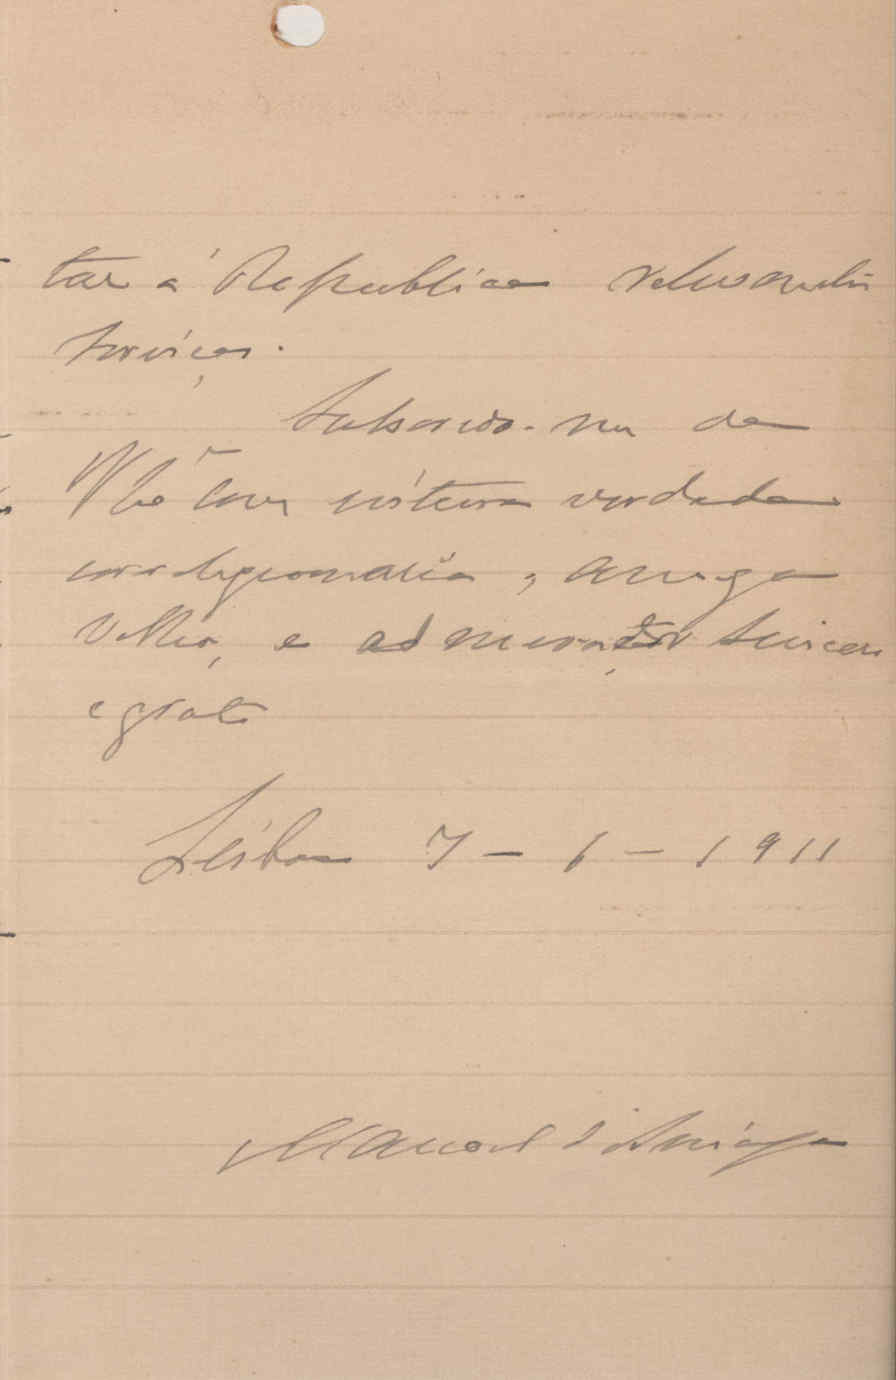 tar á Republica relevantes
serviços.
Subscrevo-me de
V. Ex.ª com inteira verdade
correligionario, amigo
velho, e admirador sincero
e grato
Lisboa 7 - 6 - 1911
Manoel d'Arriaga